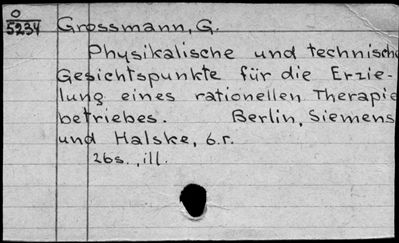 O
5234
Grossmann, G.
Physikalische und technische
Gesichtspunkte für die Erzie-
lung eines rationellen Therapie
betriebes. Berlin, Siemens
und Halske, б.г.
26s., ill.